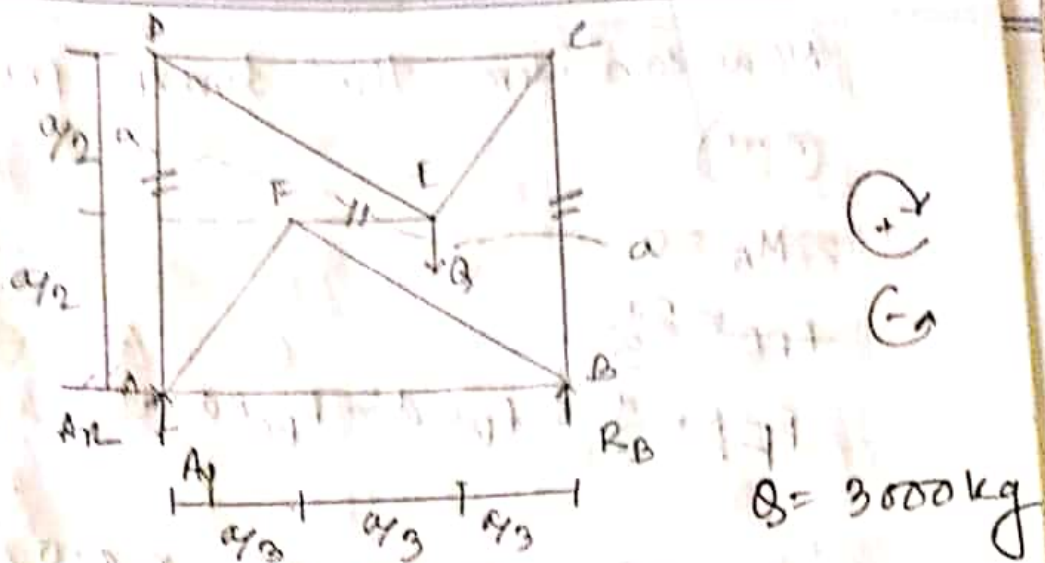 D C
a/2 a
F E
Q a
a/2
A B
R_B
a/3 a/3 a/3
Q = 3000 kg
+
-